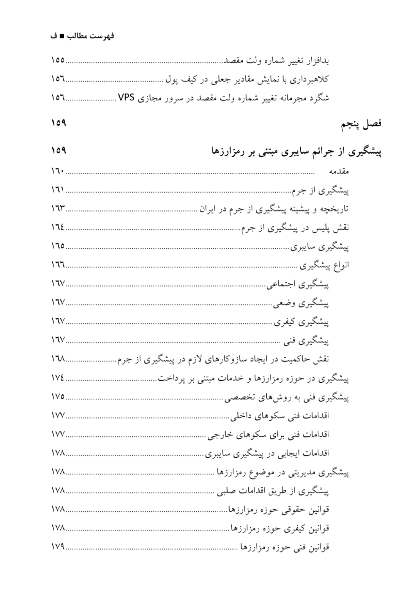 فهرست مطالب ■ ف
بدافزار تغییر شماره ولت مقصد ۱۵۵
کلاهبرداری با نمایش مقادیر جعلی در کیف پول ۱۵۶
شگرد مجرمانه تغییر شماره ولت مقصد در سرور مجازی VPS ۱۵۶
فصل پنجم ۱۵۹
پیشگیری از جرائم سایبری مبتنی بر رمزارزها ۱۵۹
مقدمه ۱۶۰
پیشگیری از جرم ۱۶۱
تاریخچه و پیشینه پیشگیری از جرم در ایران ۱۶۳
نقش پلیس در پیشگیری از جرم ۱۶٤
پیشگیری سایبری ۱۶۵
انواع پیشگیری ۱۶۶
پیشگیری اجتماعی ۱۶۷
پیشگیری وضعی ۱۶۷
پیشگیری کیفری ۱۶۷
پیشگیری فنی ۱۶۷
نقش حاکمیت در ایجاد سازوکارهای لازم در پیشگیری از جرم ۱۶۸
پیشگیری در حوزه رمزارزها و خدمات مبتنی بر پرداخت ۱۷٤
پیشگیری فنی به روش‌های تخصصی ۱۷۵
اقدامات فنی سکوهای داخلی ۱۷۷
اقدامات فنی برای سکوهای خارجی ۱۷۷
اقدامات ایجابی در پیشگیری سایبری ۱۷۸
پیشگیری مدیریتی در موضوع رمزارزها ۱۷۸
پیشگیری از طریق اقدامات صلبی ۱۷۸
قوانین حقوقی حوزه رمزارزها ۱۷۸
قوانین کیفری حوزه رمزارزها ۱۷۸
قوانین فنی حوزه رمزارزها ۱۷۹